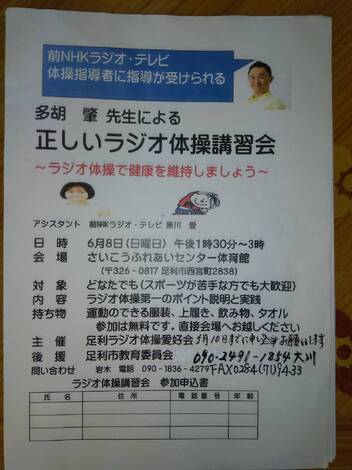 前NHKラジオ・テレビ
体操指導者に指導が受けられる
多胡 肇 先生による
正しいラジオ体操講習会
~ラジオ体操で健康を維持しましょう~
アシスタント 前NHKラジオ・テレビ 藤川 愛
日 時 6月8日(日曜日) 午後1時30分~3時
会 場 さいこうふれあいセンター体育館
(〒326-0817 足利市西宮町2838)
対 象 どなたでも(スポーツが苦手な方でも大歓迎)
内 容 ラジオ体操第一のポイント説明と実践
持ち物 運動のできる服装、上履き、飲み物、タオル
参加は無料です。直接会場へお越しください
主 催 足利ラジオ体操愛好会 5月10日までに申込お願いします
後 援 足利市教育委員会 090-2491-1854 大川
問い合わせ 岩木 電話 090-1836-4279 FAX0284(71)9433
ラジオ体操講習会 参加申込書
氏 名 住 所 電 話 番 号 年 齢